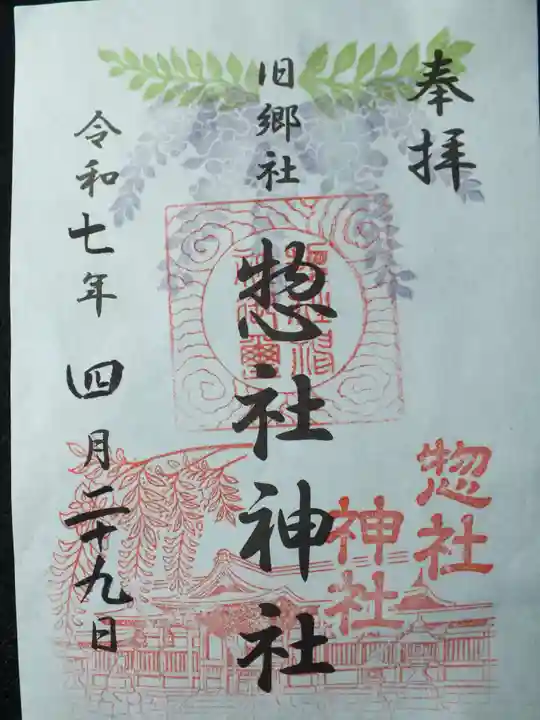 奉拝
旧郷社
惣社神社
惣社
神社
令和七年 四月二十九日